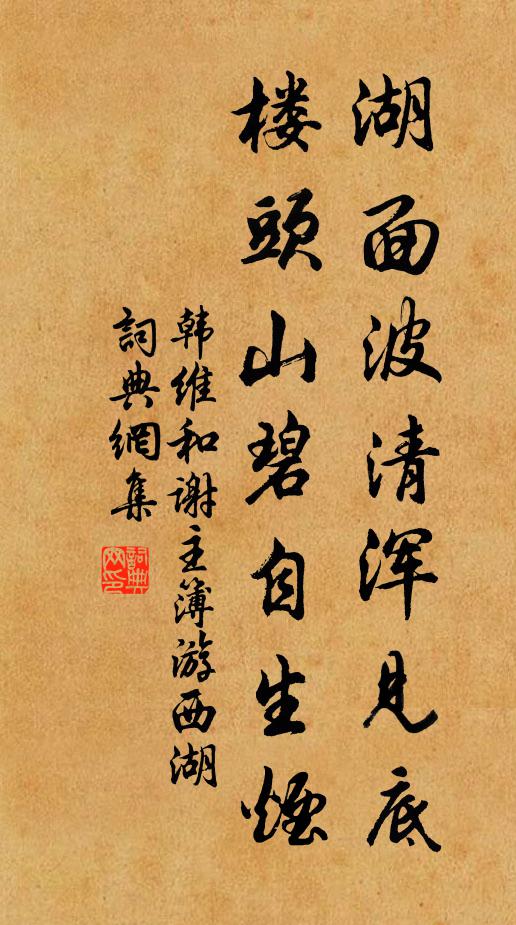 湖面波清浑见底
楼頭山碧自生煙
韩维和谢主簿游西湖
詞典網集
詞典網印